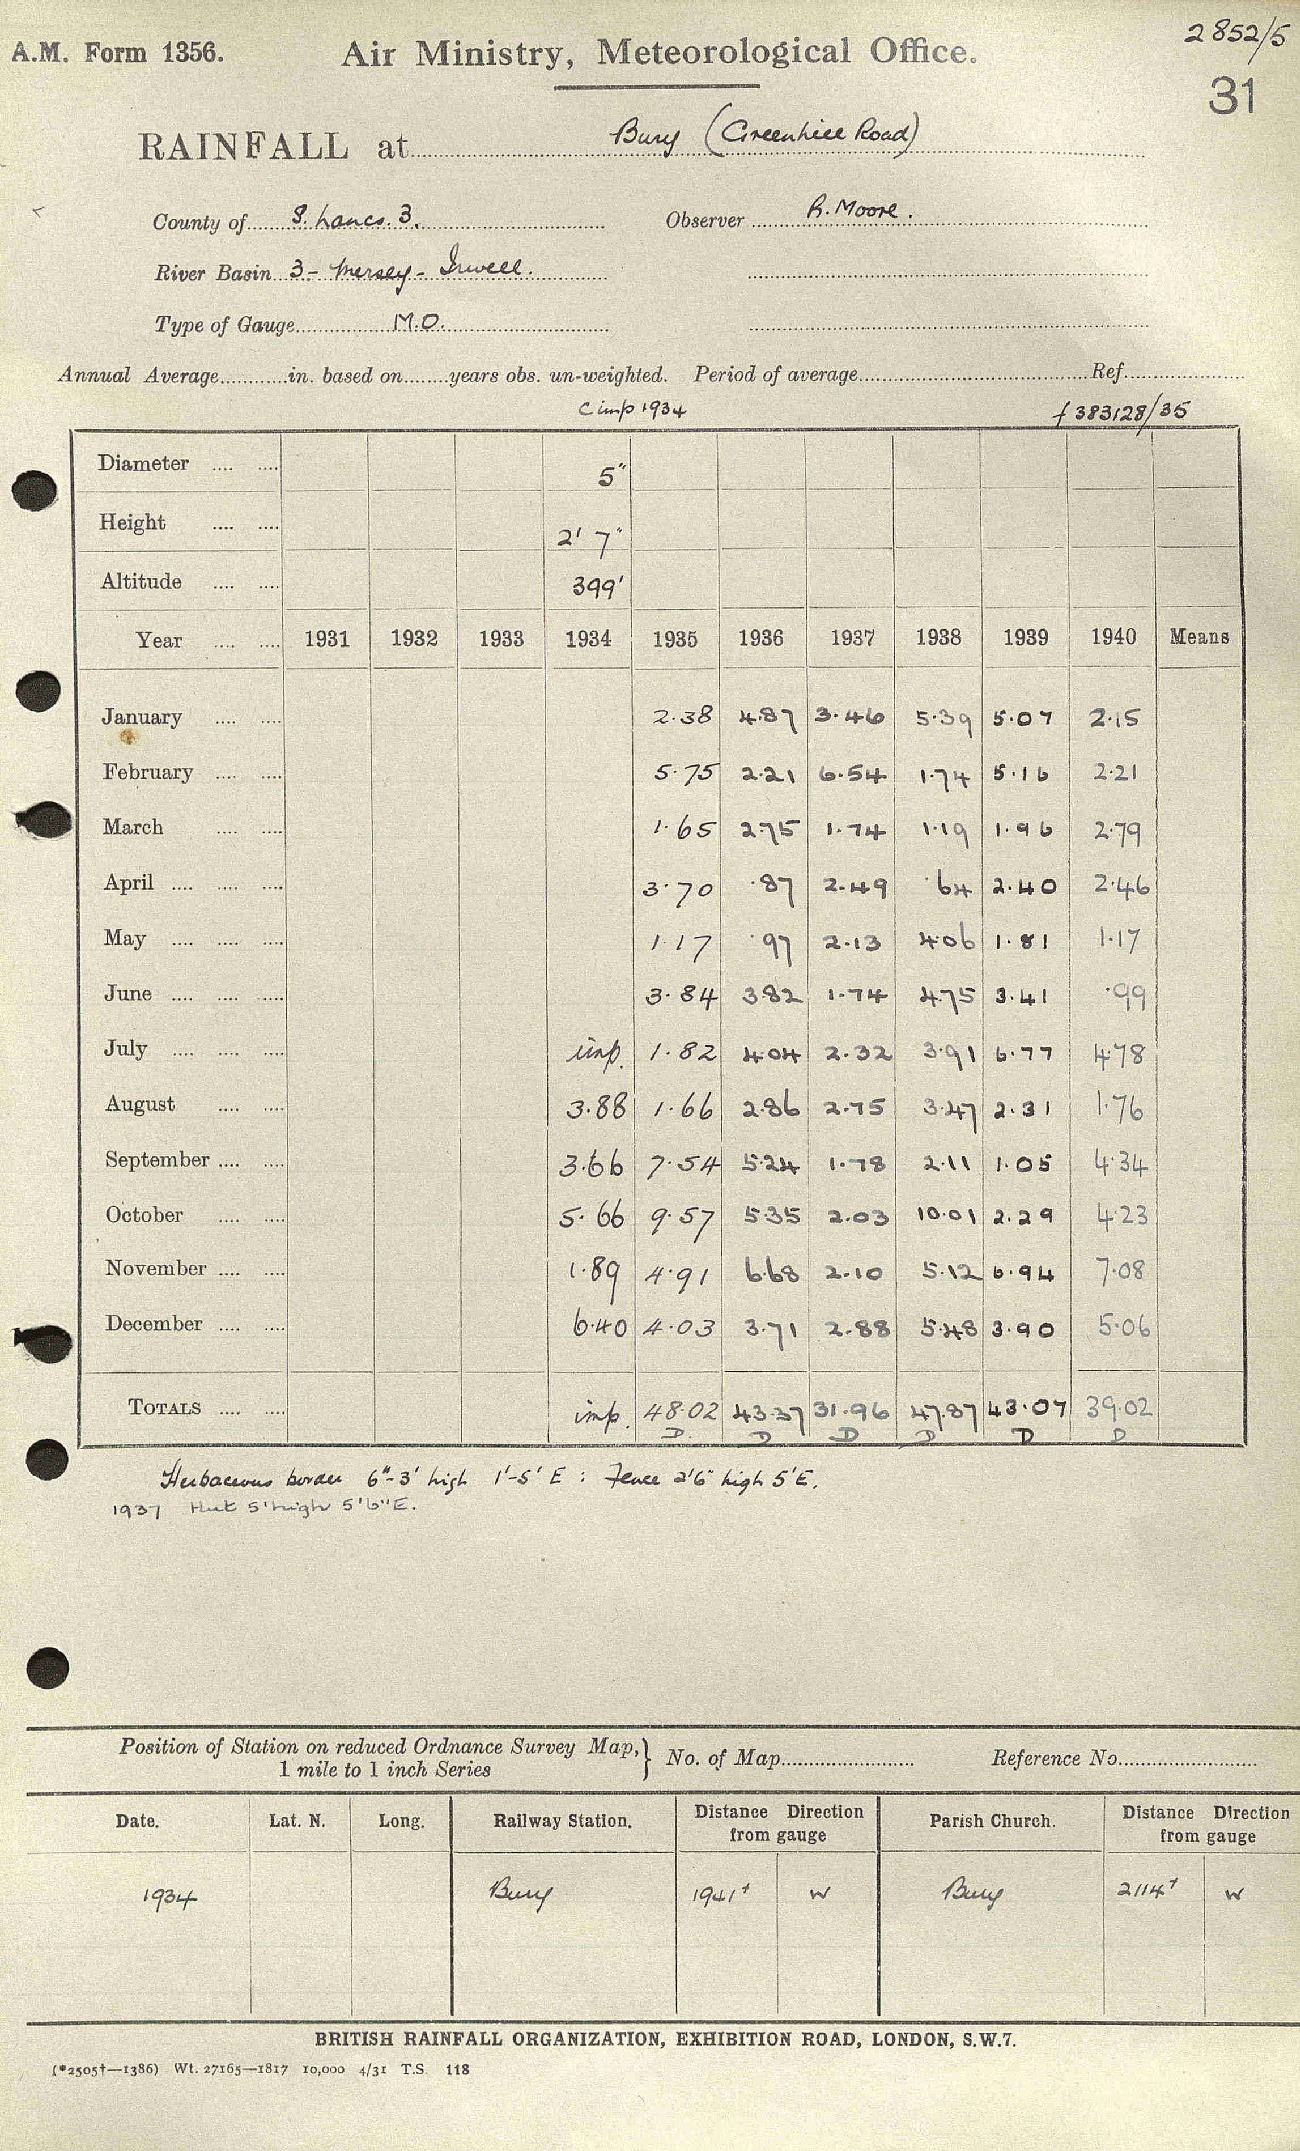 2852/5
A.M. Form 1356. Air Ministry, Meteorological Office.
31
RAINFALL at Bury (Greenhill Road)
County of S. Lancs. 3. Observer R. Moore.
River Basin 3 - Mersey - Irwell.
Type of Gauge M.O.
Annual Average in. based on years obs. un-weighted. Period of average Ref.
C imp 1934 f 383128/35
Diameter 5"
Height 2' 7"
Altitude 399'
Year 1931 1932 1933 1934 1935 1936 1937 1938 1939 1940 Means
January 2.38 4.87 3.46 5.39 5.07 2.15
February 5.75 2.21 6.54 1.74 5.16 2.21
March 1.65 2.75 1.74 1.19 1.96 2.79
April 3.70 .87 2.49 .64 2.40 2.46
May 1.17 .97 2.13 4.06 1.81 1.17
June 3.84 3.82 1.74 4.75 3.41 .99
July imp. 1.82 4.04 2.32 3.91 6.77 4.78
August 3.88 1.66 2.86 2.75 3.47 2.31 1.76
September 3.66 7.54 5.24 1.78 2.11 1.05 4.34
October 5.66 9.57 5.35 2.03 10.01 2.29 4.23
November 1.89 4.91 6.68 2.10 5.12 6.94 7.08
December 6.40 4.03 3.71 2.88 5.48 3.90 5.06
Totals imp. 48.02 43.37 31.96 47.87 43.07 39.02
D. D D D D D
Herbaceous border 6"-3' high 1'-5' E : Fence 2'6" high 5' E.
1937 Hut 5' high 5'6" E.
Position of Station on reduced Ordnance Survey Map,} No. of Map Reference No.
1 mile to 1 inch Series
Date. Lat. N. Long. Railway Station. Distance Direction from gauge Parish Church. Distance Direction from gauge
1934 Bury 1941 W Bury 2114 W
BRITISH RAINFALL ORGANIZATION, EXHIBITION ROAD, LONDON, S.W.7.
(*2505†—1386) Wt. 27165—1817 10,000 4/31 T.S. 118